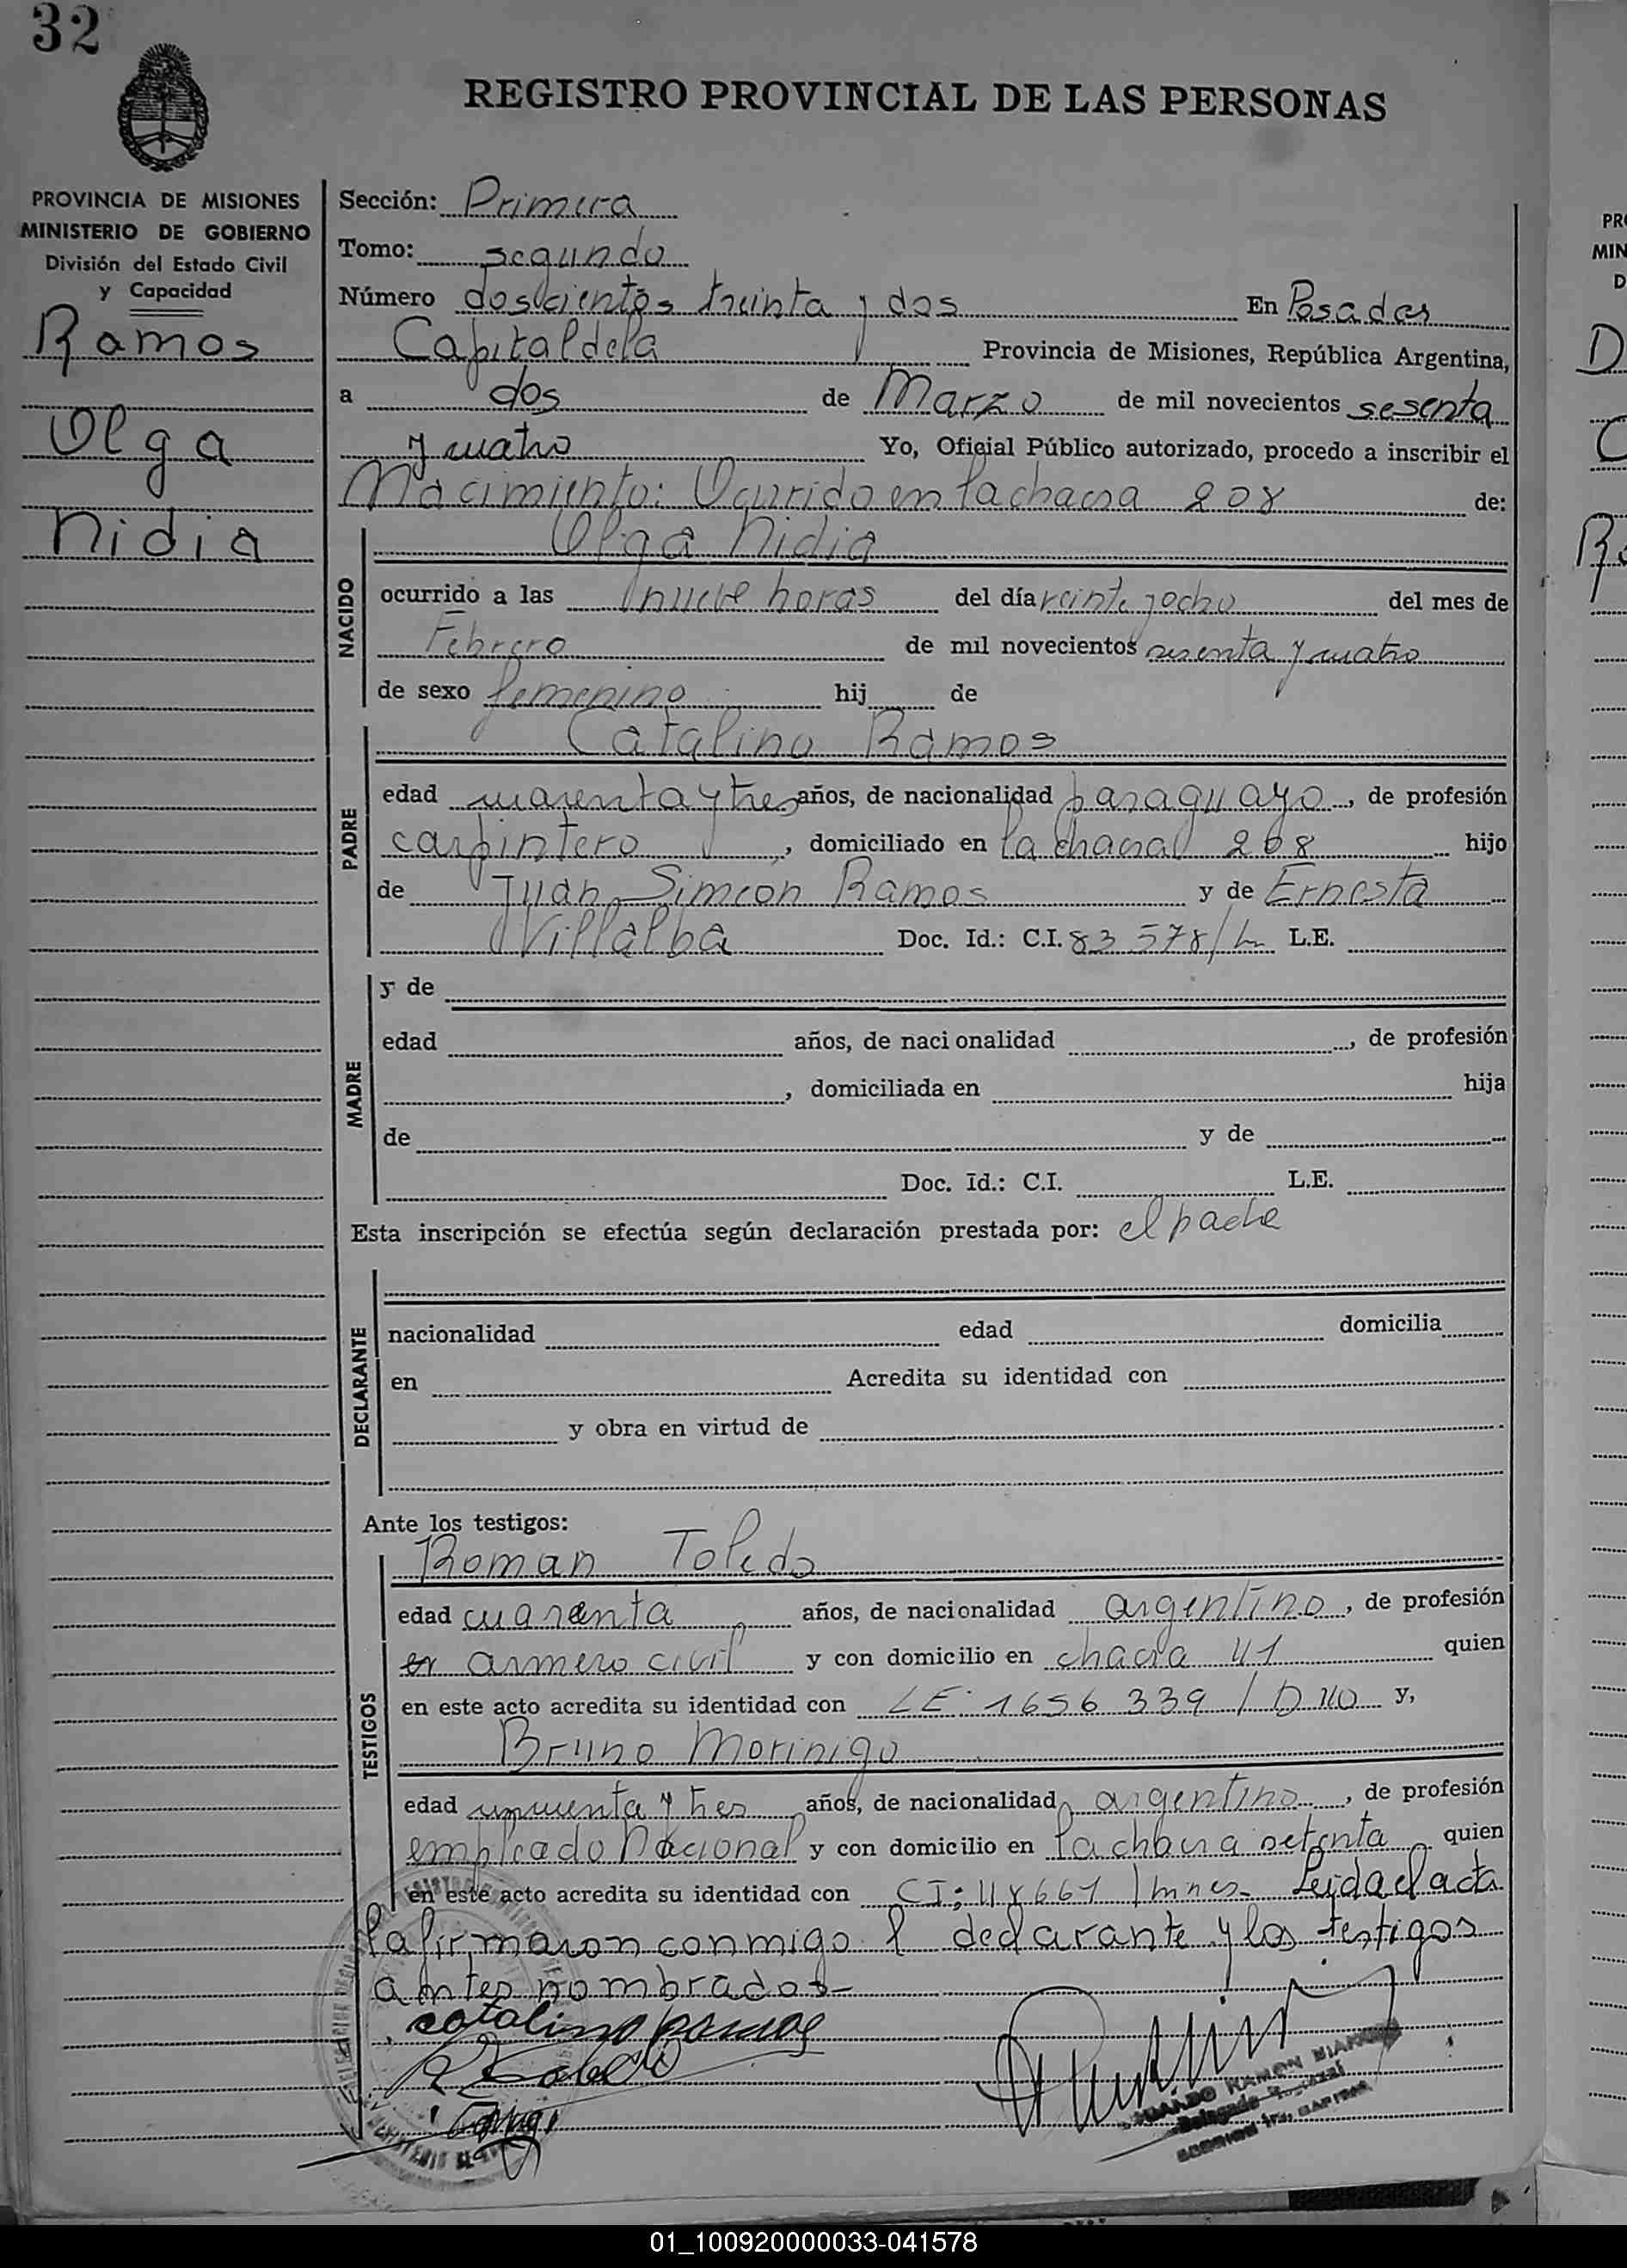 32
REGISTRO PROVINCIAL DE LAS PERSONAS
PROVINCIA DE MISIONES
MINISTERIO DE GOBIERNO
División del Estado Civil
y Capacidad
Ramos
Olga
Nidia
Sección: Primera
Tomo: segundo
Número doscientos treinta y dos En Posadas
Capital de la Provincia de Misiones, República Argentina,
a dos de Marzo de mil novecientos sesenta
y cuatro Yo, Oficial Público autorizado, procedo a inscribir el
Nacimiento: Ocurrido en la chacra 208 de:
NACIDO
Olga Nidia
ocurrido a las nueve horas del día veinte y ocho del mes de
Febrero de mil novecientos sesenta y cuatro
de sexo femenino hij de
PADRE
Catalino Ramos
edad cuarenta y tres años, de nacionalidad paraguayo, de profesión
carpintero, domiciliado en la chacra 208 hijo
de Juan Simeón Ramos y de Ernesta
Villalba Doc. Id.: C.I. 83 578/ L.E.
MADRE
y de
edad años, de nacionalidad , de profesión
, domiciliada en hija
de y de
Doc. Id.: C.I. L.E.
Esta inscripción se efectúa según declaración prestada por: el padre
DECLARANTE
nacionalidad edad domicilia
en Acredita su identidad con
y obra en virtud de
Ante los testigos:
TESTIGOS
Roman Toledo
edad cuarenta años, de nacionalidad argentino, de profesión
armero civil y con domicilio en chacra 41 quien
en este acto acredita su identidad con LE. 1656 339 / y,
Bruno Morinigo
edad cincuenta y tres años, de nacionalidad argentino, de profesión
empleado Nacional y con domicilio en la chacra setenta quien
en este acto acredita su identidad con CI: 118661 / mnes- Leida el acta
la firmaron conmigo l declarante y los testigos
antes nombrados-
catalino Ramos
RAMON
Delegado
SECCION 1ra. CAPITAL
PR
MIN
D
D
C
R
01_100920000033-041578